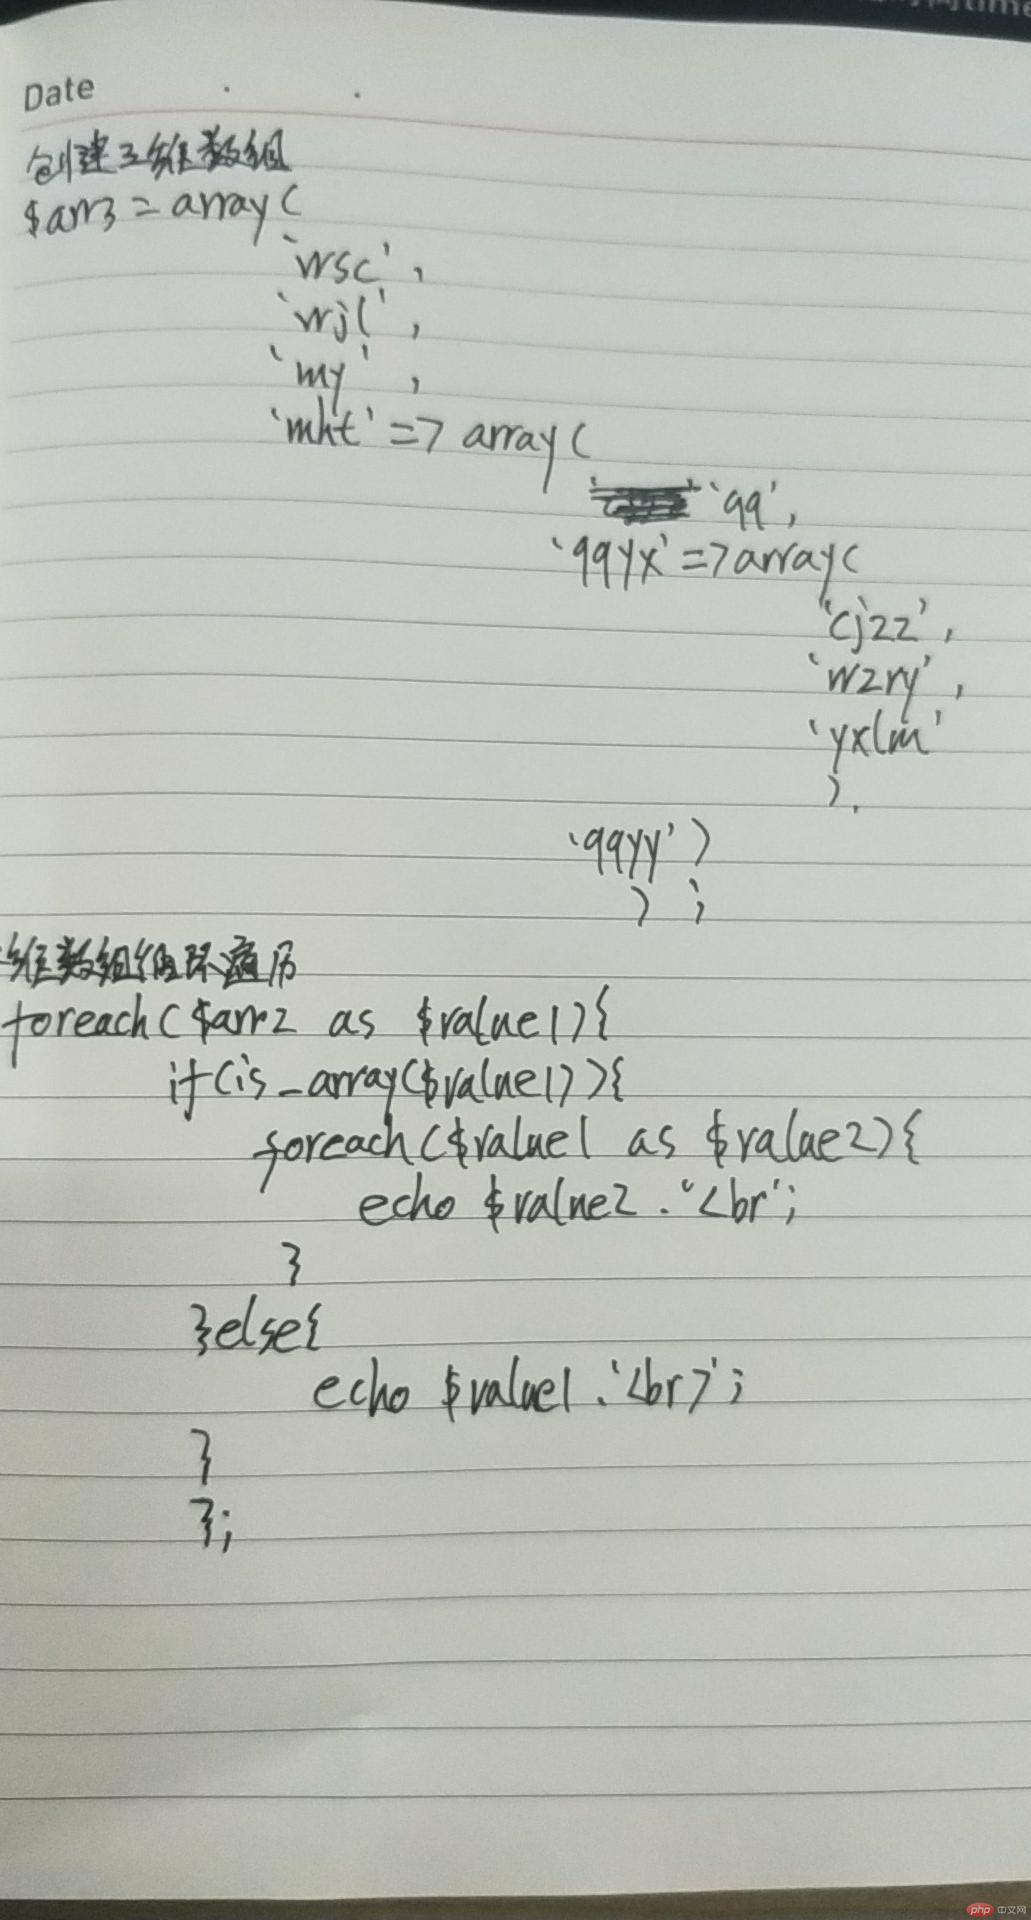 time
Date
创建三维数组
$arr3 = array(
'wsc',
'wjl',
'my',
'mht' => array(
'qq',
'qqyx' => array(
'cjzz',
'wzry',
'yxlm'
),
'qqyy')
);
维数组循环遍历
foreach($arr2 as $value1){
if(is_array($value1)){
foreach($value1 as $value2){
echo $value2.'<br';
}
}else{
echo $value1.'<br>';
}
};
php 中文网